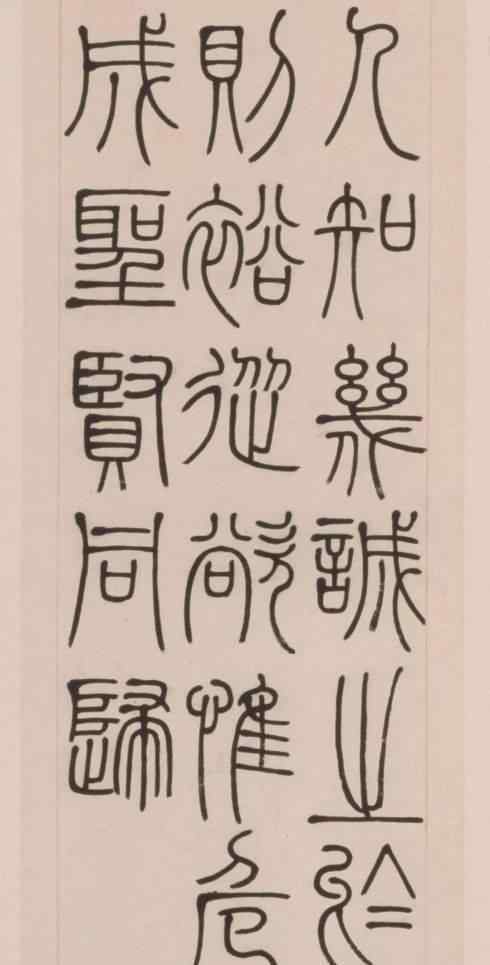 人知幾誠之於
則裕從欲惟危
成聖賢同歸